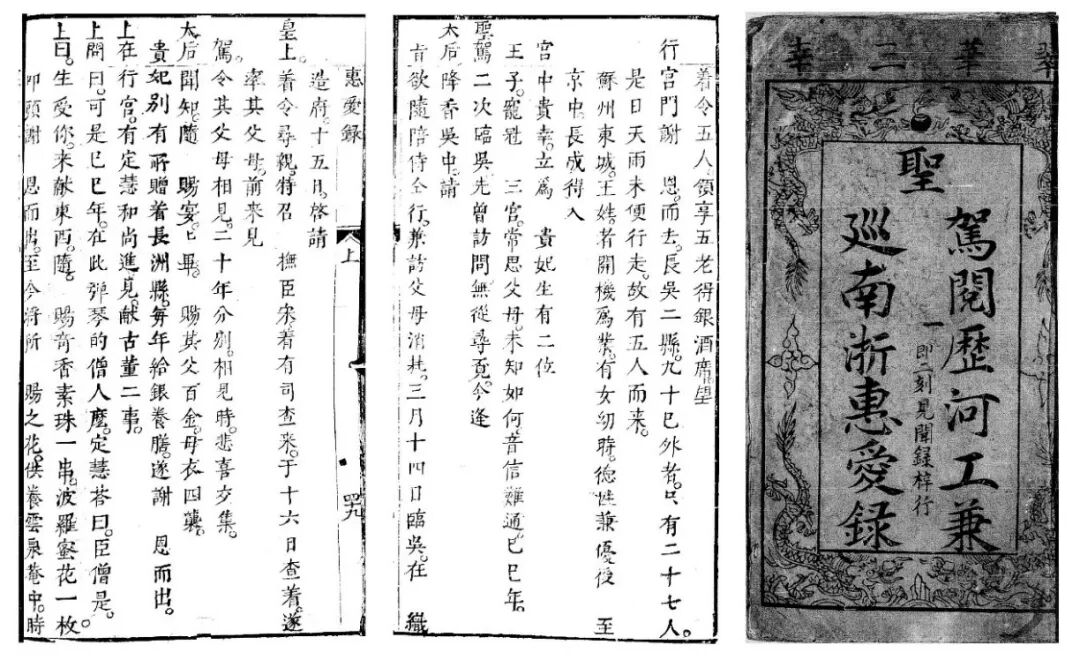 翠華三幸
聖
駕閱歷河工兼
一即二刻見聞錄梓行
巡南浙惠愛錄
着令五人領享五老得銀酒席望
行宮門謝　恩。而去。長吳二縣。九十已外者。只有二十七人。
是日天雨未便行走。故有五人而來。
蘇州東城。王姓者開機爲業。有女幼時。德性兼優。後　至
京中。長成得入
宮中貴幸。立爲　貴妃生有二位
王子。寵冠　三宮。常思父母。未知如何。音信難通。己巳年。
聖駕二次臨吳。先曾訪問。無從尋覓。今逢
太后降香吳中。請
旨欲隨陪侍仝行。兼訪父母消耗。三月十四日臨吳。在　織
惠愛錄　上　四九
造府。十五日。啓請
皇上。着令尋親。特召　撫臣宋。着有司查來。于十六日查着。遂
率其父母。前來見
駕。令其父母相見。二十年分别。相見時。悲喜交集。
太后聞知。隨　賜宴。匕畢。　賜其父百金。母衣四襲。
貴妃别有所贈。着長洲縣。每年給銀養贍。遂謝　恩而出。
上在行宮。有定慧和尚進見。献古董二事。
上問曰。可是己巳年。在此彈琴的僧人麽。定慧荅曰。臣僧是。
上曰。生受你。來献東西。隨　賜奇香素珠一串。波羅蜜花一枚
叩頭謝　恩而出。至今將所　賜之花。供養雲泉菴中。時